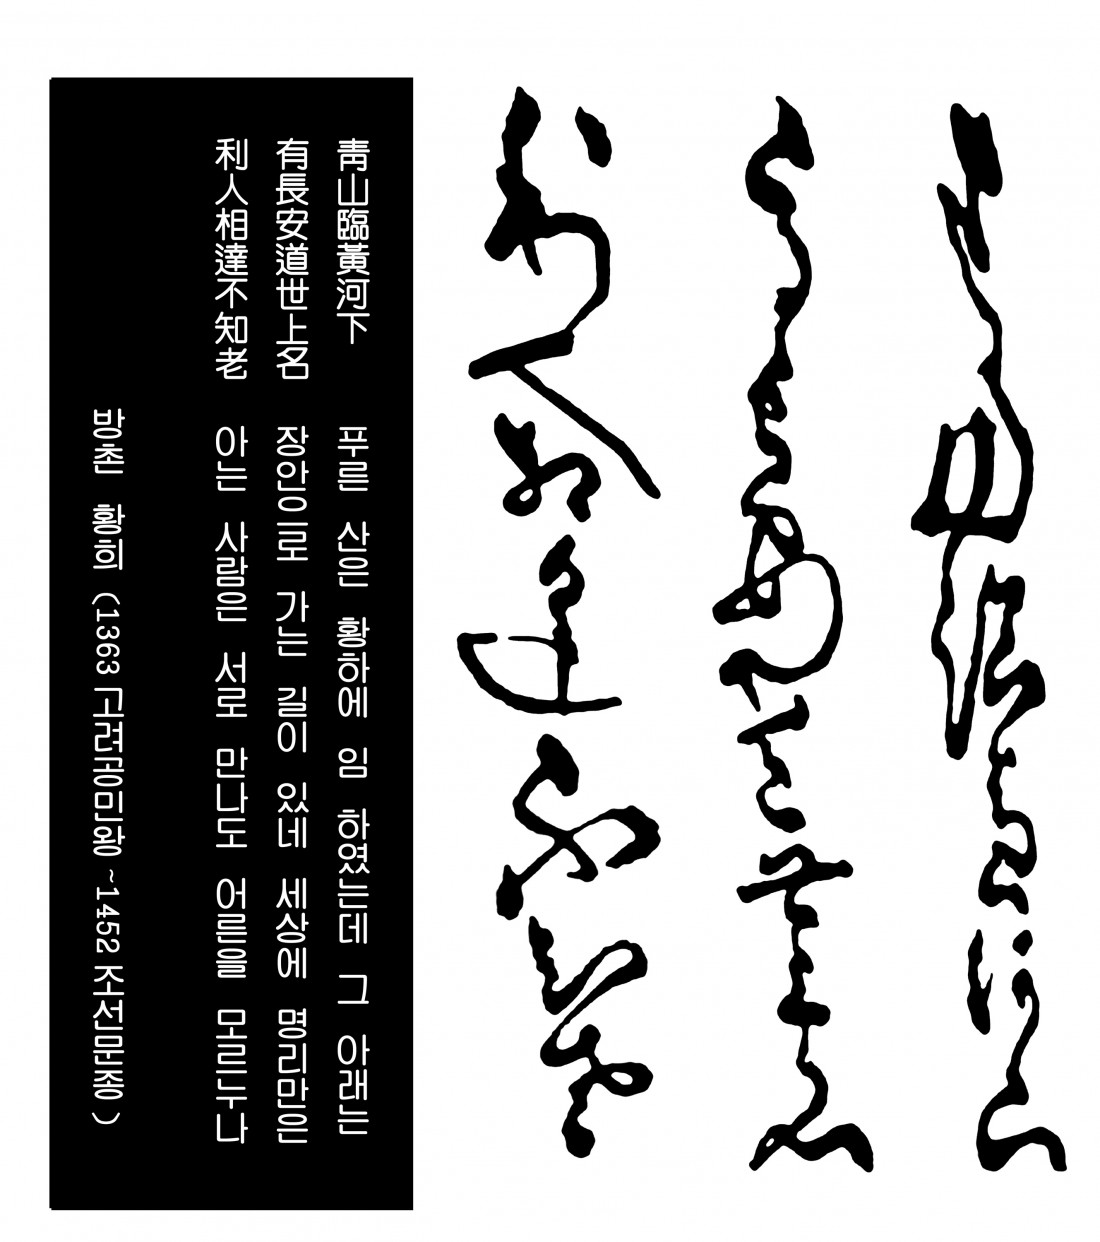 靑山臨黃河下
有長安道世上名
利人相達不知老
靑山臨黃河下 푸른 산은 황하에 임 하였는데 그 아래는
有長安道世上名 장안으로 가는 길이 있네 세상에 명리만은
利人相達不知老 아는 사람은 서로 만나도 어른을 모르누나
방촌 황희 (1363 고려공민왕 ~1452 조선문종 )